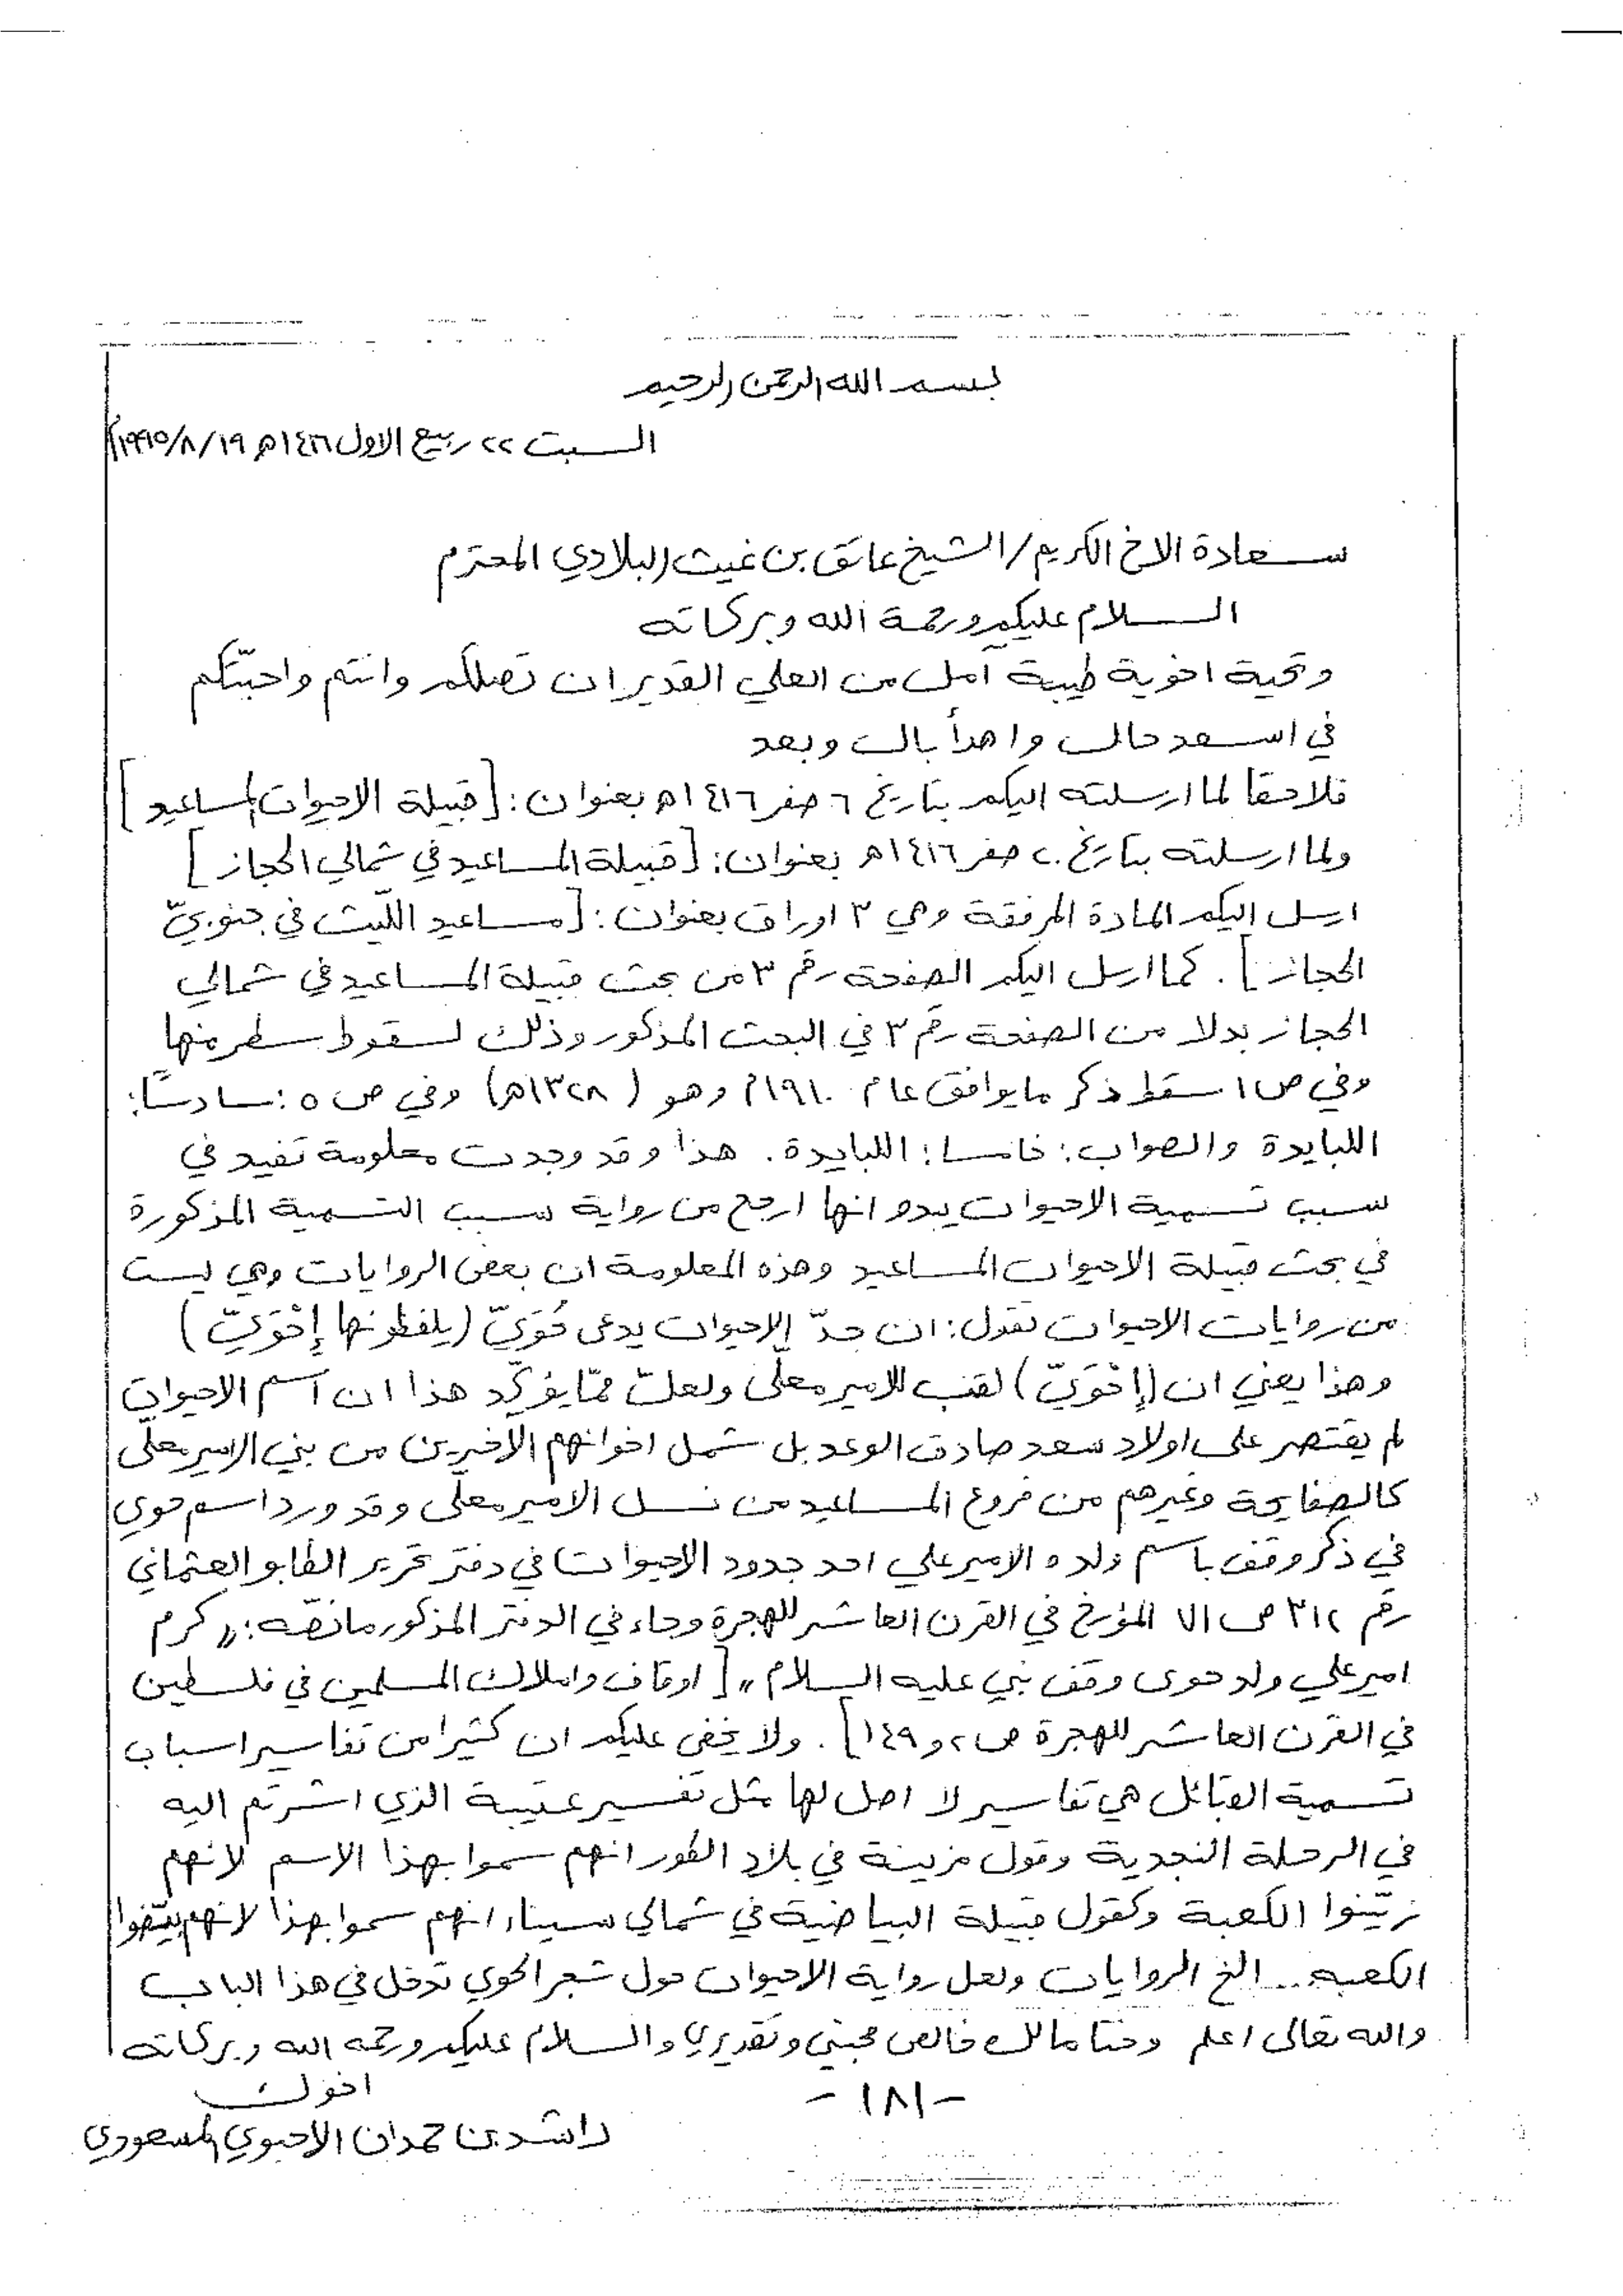 بسم الله الرحمن الرحيم
السبت ٢٢ ربيع الاول ١٤١٦هـ ١٩/٨/١٩٩٥م
سعادة الاخ الكريم / الشيخ عاتق بن غيث البلادي المحترم
السلام عليكم ورحمة الله وبركاته
وتحية اخوية طيبة آمل من العلي القدير ان تصلكم وانتم واحبتّكم
في اسعد حال واهدأ بال وبعد
فلاحقا لما ارسلته اليكم بتاريخ ٦ صفر ١٤١٦هـ بعنوان: [قبيلة الاحيوات المساعيد]
ولما ارسلته بتاريخ ٢٠ صفر ١٤١٦هـ بعنوان: [قبيلة المساعيد في شمالي الحجاز]
ارسل اليكم المادة المرفقة وهي ٣ اوراق بعنوان: [مساعيد اللّيث في جنوبيّ
الحجاز]. كما ارسل اليكم الصفحة رقم ٣ من بحث قبيلة المساعيد في شمالي
الحجاز بدلا من الصفحة رقم ٣ في البحث المذكور وذلك لسقوط سطر منها
وفي ص ١ سقط ذكر ما يوافق عام ١٩١٠م وهو (١٣٢٨هـ) وفي ص ٥: سادسًا:
اللبايدة والصواب: خامسا: اللبايدة. هذا وقد وجدت معلومة تفيد في
سبب تسمية الاحيوات يبدو انها ارجح من رواية سبب التسمية المذكورة
في بحث قبيلة الاحيوات المساعيد وهذه المعلومة ان بعض الروايات وهي ليست
من روايات الاحيوات تقول: ان جدّ الاحيوات يدعى حُوَيّ (يلفظونها إِحْوَيّ)
وهذا يعني ان (إِحْوَيّ) لقب للامير معلّى ولعلّ ممّا يؤكّد هذا ان آسم الاحيوات
لم يقتصر على اولاد سعد صادق الوعد بل شمل اخوانهم الآخرين من بني الامير معلّى
كالصفايحة وغيرهم من فروع المساعيد من نسل الامير معلّى وقد ورد اسم حوي
في ذكر وقف باسم ولده الامير علي احد جدود الاحيوات في دفتر تحرير الطابو العثماني
رقم ٣١٢ ص ٧١ المؤرخ في القرن العاشر للهجرة وجاء في الدفتر المذكور ما نصّه: «كرم
امير علي ولد حوى وقف نبي عليه السلام» [اوقاف واملاك المسلمين في فلسطين
في القرن العاشر للهجرة ص ٢ و ١٤٩]. ولا يخفى عليكم ان كثيرا من تفاسير اسباب
تسمية القبائل هي تفاسير لا اصل لها مثل تفسير عتيبة الذي اشرتم اليه
في الرحلة النجدية وقول مزينة في بلاد الطور انهم سموا بهذا الاسم لانهم
زيّنوا الكعبة وكقول قبيلة البياضية في شمالي سيناء انهم سموا بهذا لانهم بيّضوا
الكعبه... الخ الروايات ولعل رواية الاحيوات حول شجر الحوي تدخل في هذا الباب
والله تعالى اعلم وختاما لك خالص محبتي وتقديري والسلام عليكم ورحمه الله وبركاته
اخوك
راشد بن حمدان الاحيوي المسعودي
- ١٨١ -